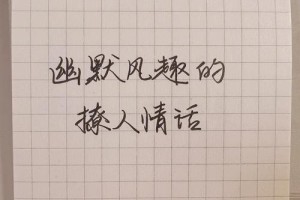 幽默风趣的
撩人情话